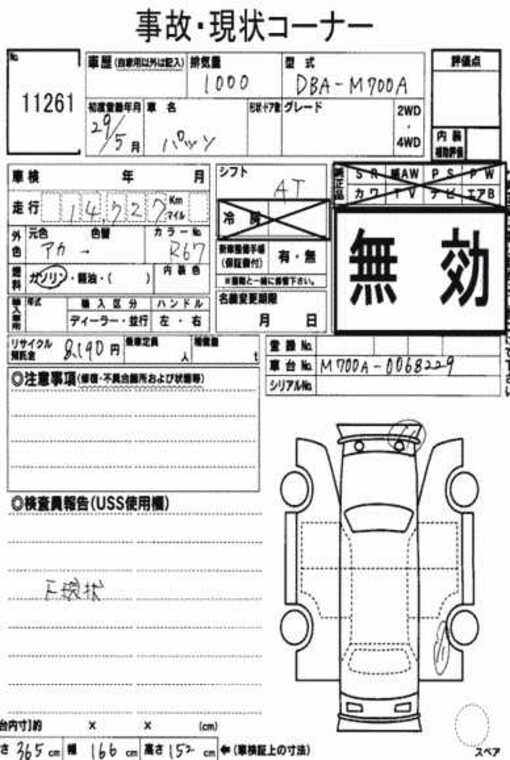 事故・現状コーナー
No.
11261
車歴 (自家用以外は記入)
排気量
1000
型式
DBA-M700A
評価点
初度登録年月
29/5月
車名
パッソ
形状 ドア数
グレード
2WD
・
4WD
内装
補助評価
車検 年 月
シフト
AT
純正品
SR 純AW PS PW
カワ TV ナビ エアB
走行
14,727
Km
マイル
冷房
外色
元色 色替
アカ →
カラーNo.
R67
新車整備手帳
(保証書付)
有・無
※書類と一緒に保管下さい。
無効
燃料
ガソリン・軽油・( )
内装色
輸入車用
年式
輸入区分
ディーラー・並行
ハンドル
左・右
名義変更期限
月 日
リサイクル
預託金
8,190円
乗車定員
人
積載量
t
登録No.
車台No.
M700A-0068229
シリアルNo.
◎注意事項(修復・不具合箇所および状態等)
◎検査員報告(USS使用欄)
F現状
台内寸)約 × × (cm)
さ 365cm 幅 166cm 高さ 152cm ←(車検証上の寸法)
スペア